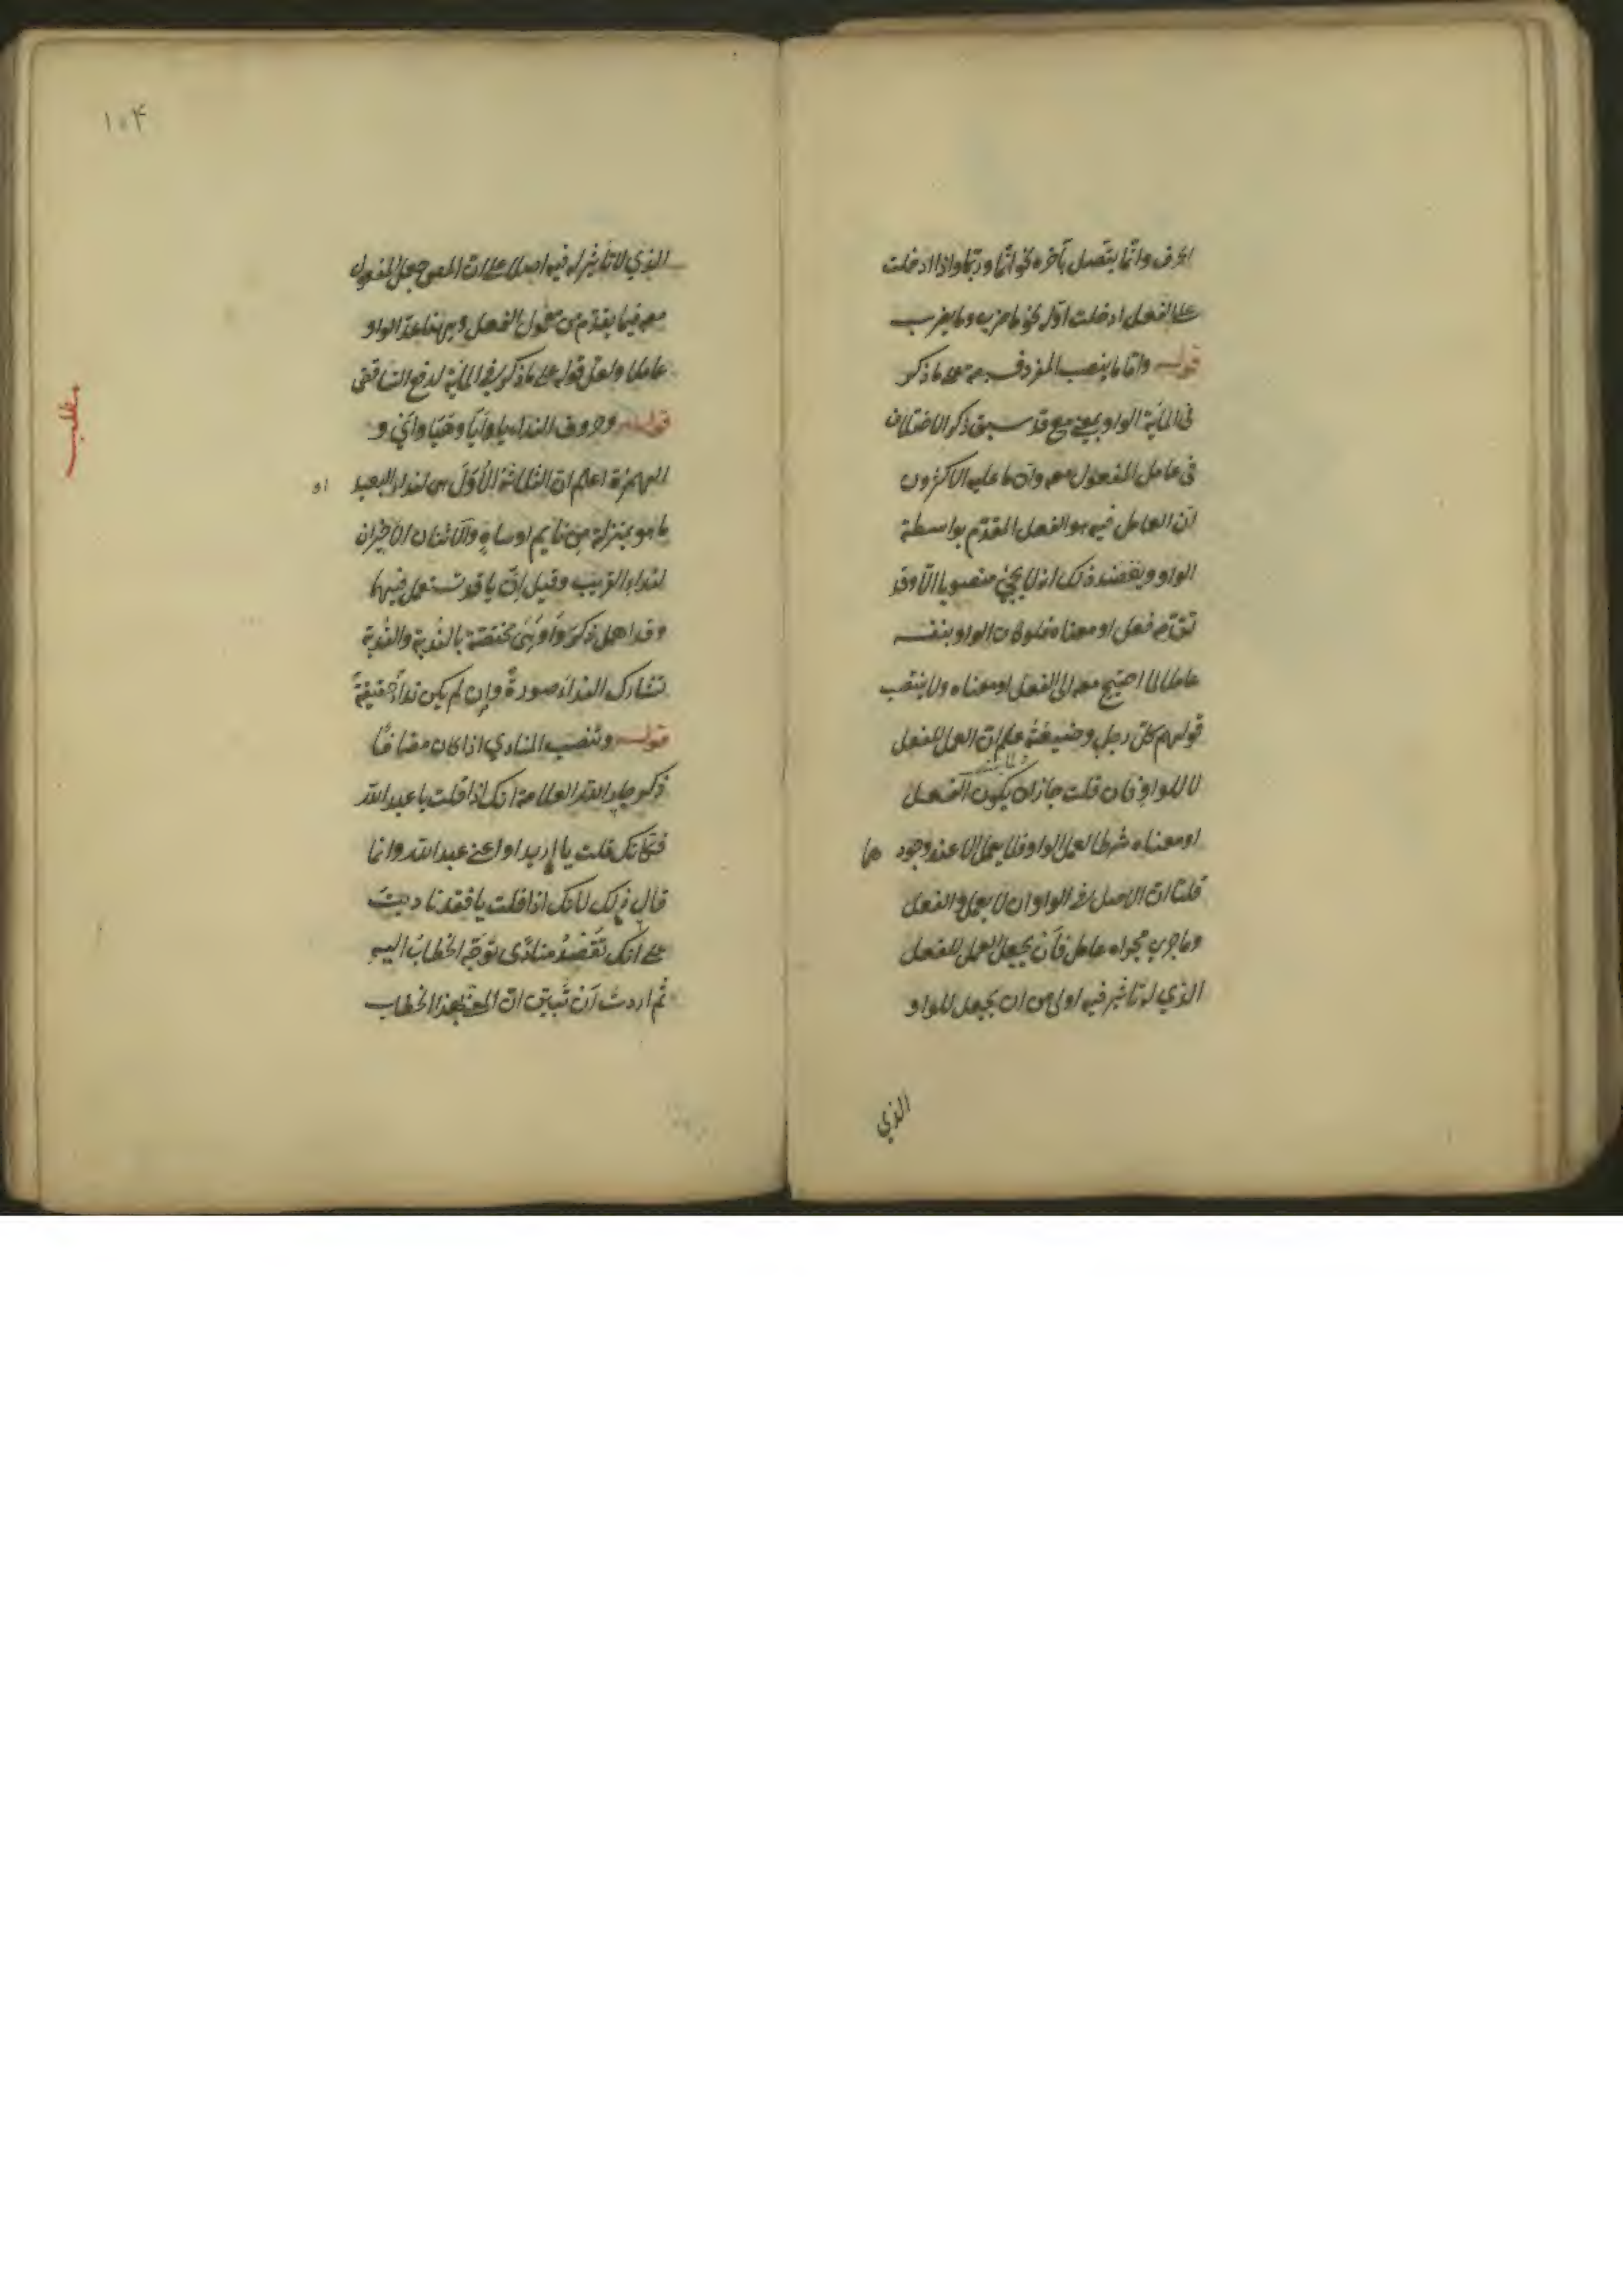 الحرف وانما يتصل بآخره نحو انما وربما واذا ادخلت
على الفعل ادخلت اوله نحو ما ضرب وما يضرب
قوله واما ما ينصب المفرد فسبعة على ما ذكر
فى المائة الواو بمعنى مع قد سبق ذكر الاختلاف
فى عامل المفعول معه وان ما عليه الاكثرون
ان العامل فيه هو الفعل المقدم بواسطة
الواو ويعضد ذلك انه لا يجئ منصوبا الا وقد
تقدم فعل او معناه فلو كان الواو بنفسه
عاملا لما احتيج معه الى الفعل او معناه ولا ينتصب
قولهم كل رجل وضيعته علم ان العمل للفعل
لا للواو فان قلت جاز ان يكون الفعل
او معناه شرطا لعمل الواو فلا يعمل الا عند وجود هما
قلنا ان الاصل فى الواو ان لا يعمل والفعل
وما جرى مجراه عامل فأن يجعل العمل للفعل
الذي له تاثير فيه اولى من ان يجعل للواو
الذي
١٠۴
الذي لا تأثير له فيه اصلا على ان المص جعل المفعول
معه فيما يقدم من معمول الفعل وههنا عد الواو
عاملا ولعل قوله على ما ذكر فى المائة لدفع التناقض
قوله وحروف النداء يا وأيا وهيا وأي و
الهمزة اعلم ان الثلاثة الأول من لنداء البعيد او
ما هو بمنزلته من نايم او ساهٍ والاثنان الأخيران
لنداء القريب وقيل إن يا قد تستعمل فيهما
وقد اهمل ذكر وا وهى مختصة بالندبة والندبة
تشارك النداء صورةً وإن لم يكن نداءً حقيقةً
قوله وتنصب المنادي اذا كان مضافًا
ذكر جار الله العلامة انك اذا قلت يا عبد الله
فكأنك قلت يا اريد او اعنى عبد الله وانما
قال ذلك لانك اذا قلت يا فقد ناديت
على انك تقصد منادًى توجّه الخطاب اليه
ثم اردت أن تبين ان المعنى بهذا الخطاب
مطلب